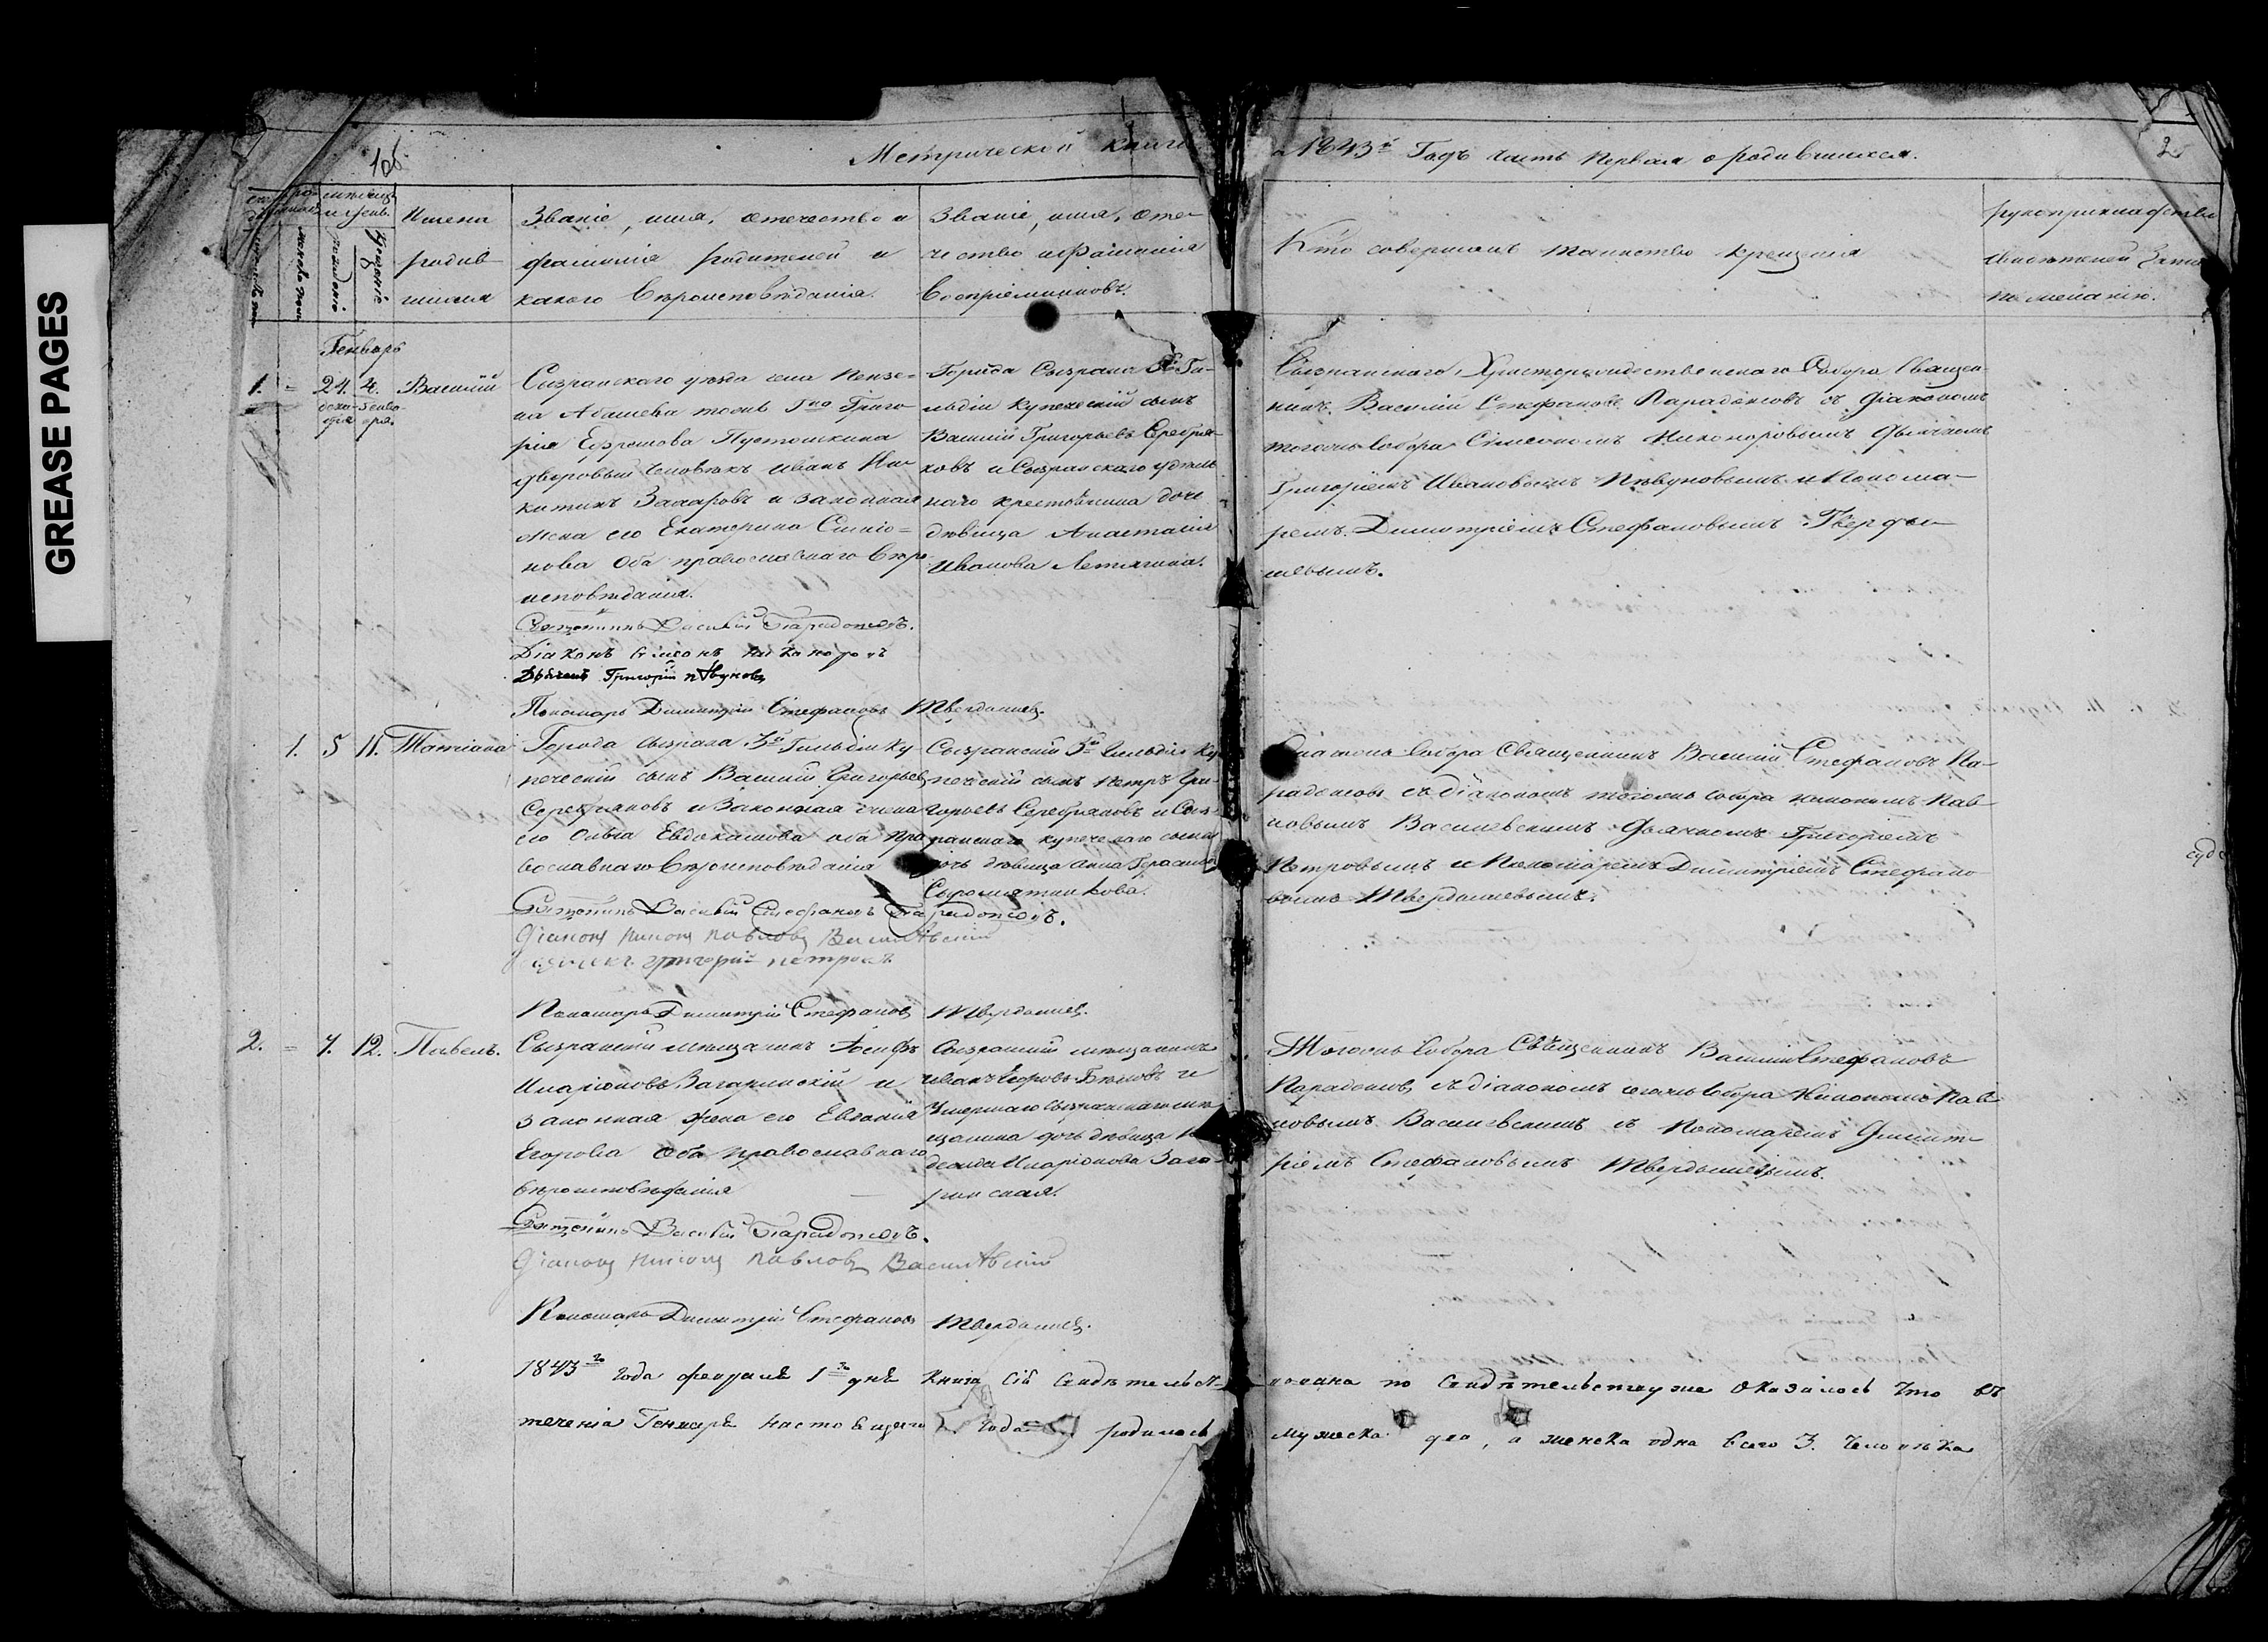 GREASE PAGES
1об
Метрической книги на 1843й Годъ часть первая о родившихся.
2
Имена родившихся
Званіе, имя, отечество и фамилія родителей и какого вѣроисповѣданія.
Званіе, имя, отечество и фамилія Воспріемниковъ.
Кто совершалъ таинство крещенія
рукоприкладство свидѣтелей
по желанію.
Генварь
1. 24. 4. Василій
дека- генва-
бря аря.
Сызранскаго уѣзда села
рія Ефремова Пустошкина
дворовый человѣкъ Иванъ Ни-
китинъ Захаровъ и законная
жена его Екатерина Симіо=
нова Оба православнаго вѣро-
исповѣданія.
Города Сызрана 3й Ги-
льдіи купеческій сынъ
Василій Григорьевъ Серебря-
ковъ и Сызранскаго удѣль
наго крестьянина дочь
дѣвица Анастасія
Иванова Летягина.
Сызранскаго Христорождественскаго Собора Священ-
никъ Василій Стефановъ Парадоксовъ съ діакономъ
тогожъ Собора Симеономъ Никоноровымъ Дьячкомъ
Григоріемъ Ивановымъ Пѣвуновымъ и Понома-
ремъ Димитріемъ Стефановымъ Тверды-
шевымъ.
Священникъ Василій Парадоксовъ.
Діаконъ Симеонъ Никаноровъ
Дьячекъ Григорій Пѣвуновъ
Пономарь Димитрій Стефановъ Твердышевъ.
1. 5 11. Татіана
Города Сызрана 3й Гильдіи Ку
печескій сынъ Василій Григорьевъ
Серебряковъ и Законная жена
его Ольга Евдокимова оба пра
вославнаго Вѣроисповѣданія
Сызранскій 3й Гильдіи Ку
печескій сынъ Петръ Гри-
горьевъ Серебряковъ и Сыз-
ранскаго купеческаго сына
дочь дѣвица Анна Герасимова
Сыромятникова.
Тогожъ Собора Священникъ Василій Стефановъ Па-
радоксовъ съ діакономъ тогожъ собора Кинономъ Пав-
ловымъ Василевскимъ Дьячкомъ Григоріемъ
Петровымъ и Пономаремъ Димитріемъ Стефано
вымъ Твердышевымъ.
Священникъ Василій Стефановъ Парадоксовъ.
Діаконъ Павловъ Василѣвскій
Дьячекъ Григорій Петровъ
Пономарь Димитрій Стефановъ Твердышевъ.
2. = 7. 12. Павелъ.
Сызранскій мѣщанинъ Іосифъ
Иларіоновъ Загаринскій и
законная жена его Евгенія
Егорова Оба православнаго
вѣроисповѣданія
Сызранскій мѣщанинъ
Иванъ Егоровъ Бѣловъ и
Умершаго Сызранскаго мѣ
щанина дочь дѣвица
Иларіонова Зага-
ринская.
Тогожъ Собора Свѣщенникъ Василій Стефановъ
Парадоксовъ съ діакономъ тогожъ Собора Кинономъ Пав
ловымъ Василевскимъ съ Пономаремъ Димит-
ріемъ Стефановымъ Твердышевымъ.
Священникъ Василій Парадоксовъ.
Діаконъ Павловъ Василѣвскій
Пономарь Димитрій Стефановъ Твердышевъ.
1843го года февраля 1го дня книга сія свидѣтельствована по свидѣтельству же оказалось что въ
теченіи Генваря настоящаго года родилось мужеска два, а женска одна всего 3. человѣка